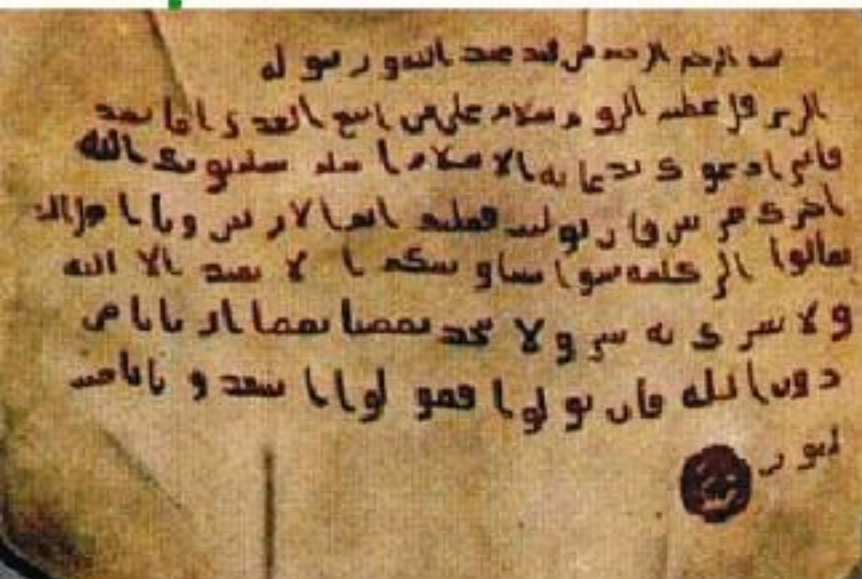 الرحمن الرحيم من محمد عبد الله ورسوله
الى هرقل عظيم الروم سلام على من اتبع الهدى اما بعد
فانى ادعوك بدعاية الاسلام اسلم تسلم يوتك الله
اجرك مرتين فان توليت فعليك اثم الاريسين ويا اهل
تعالوا الى كلمة سوا بيننا وبينكم ا لا نعبد الا الله
ولا نشرك به ولا يتخذ بعضنا بعضا اربابا من
دون الله فان تولوا فقولوا اشهدوا بانا مس
لمون